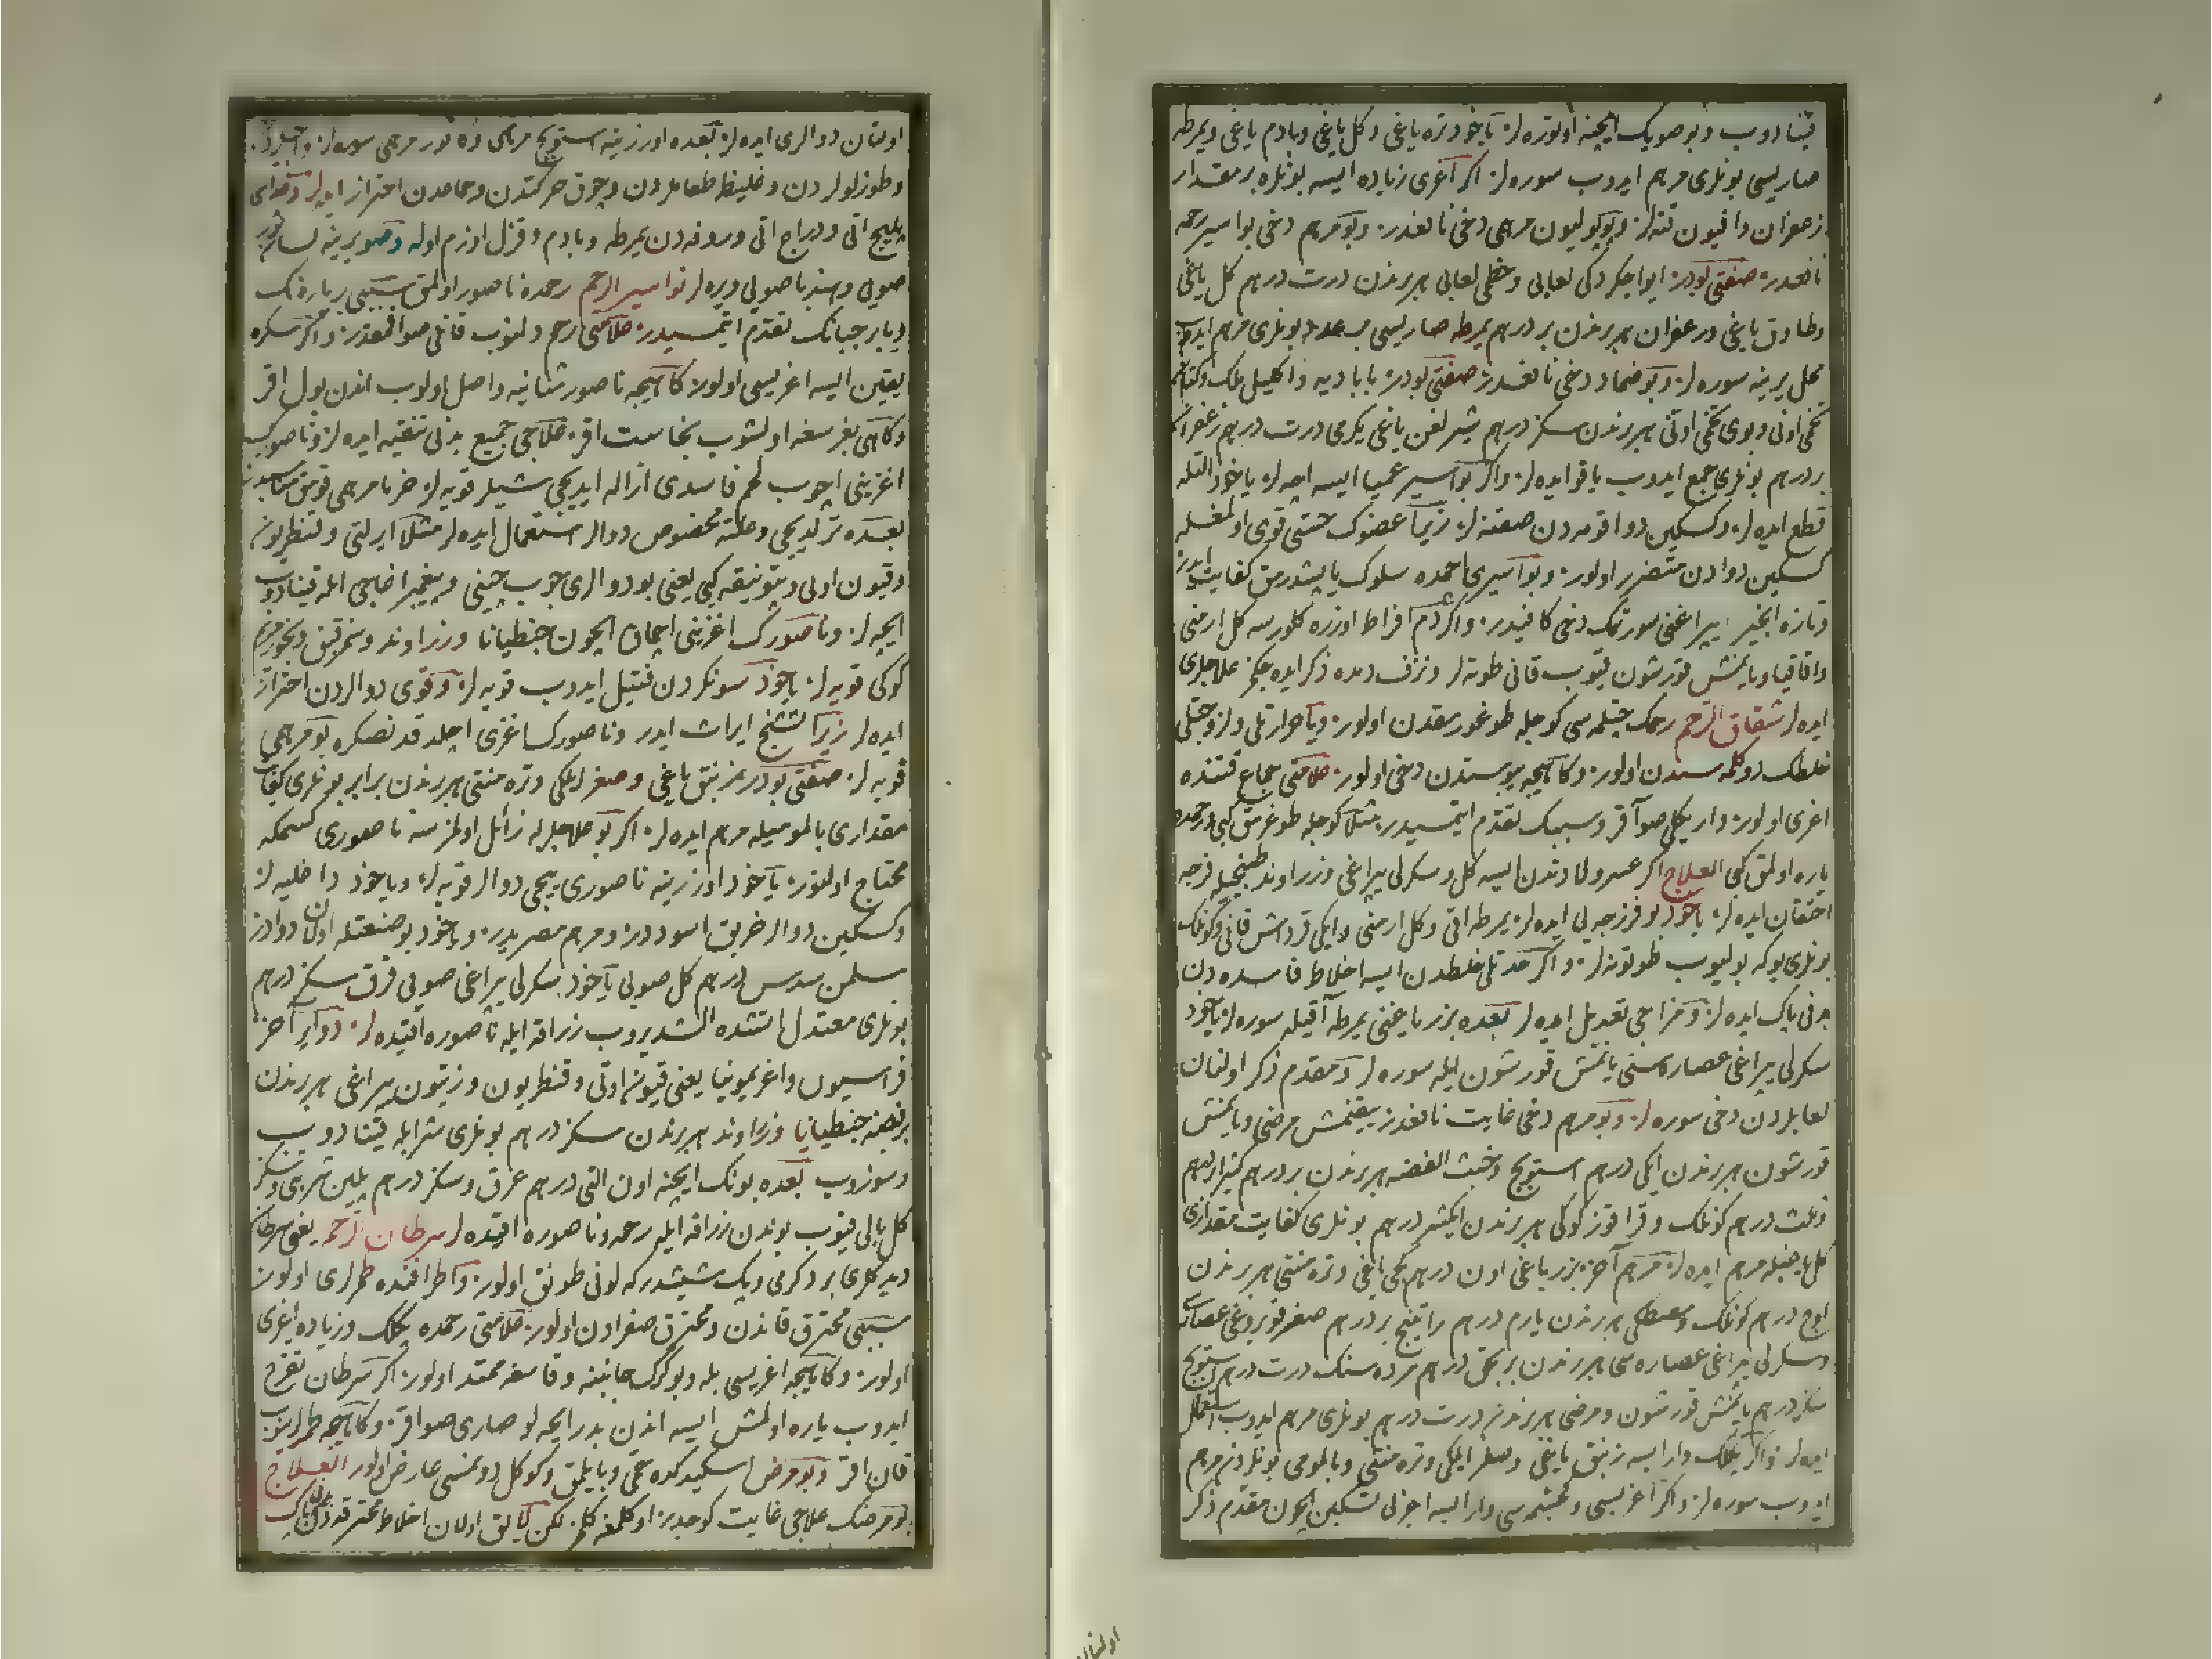 قینادوب وبو صویک ایچنه اوتوره لر یاخود تره یاغی وکل یاغی وبادم یاغی ویمرطه
صاریسی بونلری مرهم ایدوب سوره لر اکر آغری زیاده ایسه بونلره بر مقدار
زعفران وافیون قته لر وپوپولیون مرهمی دخی نافعدر وبو مرهم دخی بواسیر رحمه
نافعدر صنعتی بودر ایوا چکردکی لعابی وخطمی لعابی هربرندن درت درهم کل یاغی
وطاوق یاغی وزعفران هربرندن بر درهم یمرطه صاریسی عدد بونلری مرهم ایدوب
محل یرینه سوره لر وبو ضماد دخی نافعدر صنعتی بودر بابادیه واکلیل ملک وکتان
تخمی اونی وبوی تخمی اونی هربرندن سکز درهم شیرلغن یاغی یکرمی درت درهم زعفران
بر درهم بونلری جمع ایدوب یاقو ایده لر واکر بواسیر عمیا ایسه اچه لر یاخود التله
قطع ایده لر وکسکین دوا قومه دن صقنه لر زیرا عضوک حسی قوی اولمغله
کسکین دوادن متضرر اولور وبواسیری احمده سلوک یاپشدرمق کفایت ایدر
وتازه انجیر یپراغنی سورتمک دخی کافیدر واکر دم افراط اوزره کلورسه کل ارمنی
واقاقیا ویانمش قورشون قیوب قانی طوته لر ونزف دمده ذکر ایده جکز علاجلری
ایده لر شقاق الرحم رحمک چتلمه سی کوجله طوغورمقدن اولور ویا حرارتلی ولزوجتلی
غلطک دوکلمه سندن اولور وکاهیجه یبوستدن دخی اولور علامتی جماع وقتنده
اغری اولور وار یکلی صو آقر وسببک تقدم ایتمسیدر مثلا کوجله طوغرمق کبی ورحمده
یاره اولمق کبی العلاج اکر عسر ولادتدن ایسه کل وسکرلی یپراغی وزراوند طبیخیله فرجه
احتقان ایده لر یاخود بو فرزجه یی ایده لر یمرطه اقی وکل ارمنی وایکی قرداش قانی وکونلک
بونلری یوکه بولیوب طوتونه لر واکر حدتلی خلطدن ایسه اخلاط فاسده دن
بدنی پاک ایده لر ومزاجی تعدیل ایده لر بعده بزر یاغینی یمرطه آقیله سوره لر یاخود
سکرلی یپراغی عصاره سنی یانمش قورشون ایله سوره لر ومقدم ذکر اولنان
لعابلردن دخی سوره لر وبو مرهم دخی غایت نافعدر ییقنمش مرضی ویانمش
قورشون هربرندن ایکی درهم استوبج وخبث الفضه هربرندن بر درهم کثیرا درهم
وثلث درهم کونلک وقرا قوز کوکی هربرندن ایکیشر درهم بونلری کفایت مقداری
کل یاغیله مرهم ایده لر مرهم آخر بزر یاغی اون درهم کچی یاغی وتره منتی هربرندن
اوچ درهم کونلک ومصطکی هربرندن یارم درهم راتینج بر درهم صغر قویروغی عصاره سی
وسکرلی یپراغی عصاره سی هربرندن بر بچق درهم مرده سنک درت درهم استوبج
سکز درهم یانمش قورشون ومرضی هربرندن درت درهم بونلری مرهم ایدوب استعمال
ایده لر واکر یکلک وار ایسه زنبق یاغی وصغر ایلیکی وتره منتی وبالمومی بونلردن مرهم
ایدوب سوره لر واکر اغریسی وکیشمه سی وار ایسه اجزلی تسکین ایچون مقدم ذکر
اولنان
اولنان دوالری ایده لر بعده اوزرینه استوبج مرهمی وه نور مرهمی سوره لر واجیلردن
وطوزلولردن وغلیظ طعاملردن وچوق حرکتدن وجماعدن احتراز ایده لر وغدای
پلیج اتی ودراج اتی ومزوره دن یمرطه وبادم وقزل اوزم اوله وصو یرینه لسان ثور
صویی وهندبا صویی ویره لر نواسیر الرحم رحمده ناصور اولمق سببی بر یاره نک
ویا بر چبانک تقدم ایتمسیدر علامتی رحم دلنوب قانلی صو آقمقدر واکثر سکره
یقین ایسه اغریسی اولور کاهیجه ناصور مثانیه واصل اولوب اندن بول اقر
وکاهی بغرسغه اولشوب نجاست اقر علاجی جمیع بدنی تنقیه ایده لر وناصورک
اغزینی اچوب لحم فاسدی ازاله ایدیجی شیلر قویه لر خرما مرهمی قومق مناسبدر
بعده تر ایدیجی وعلته مخصوص دوالر استعمال ایده لر مثلا ایرلتی وقنطریون
وقیون اوتی وتوتیقه کبی یعنی بو دوالری چوب چینی وپیغمبر اغاجی ایله قینادوب
ایچه لر وناصورک اغزینی اچماق ایچون جنطیانا وزراوند وشمرقیق وبخور مریم
کوکی قویه لر یاخود سونکردن فتیل ایدوب قویه لر وقوی دوالردن احتراز
ایده لر زیرا تشنج ایراث ایدر وناصورک اغزی اچلدقدنصکره بو مرهمی
قویه لر صنعتی بودر زنبق یاغی وصغر ایلیکی وتره منتی هربرندن برابر بونلری کفایت
مقداری بالمومیله مرهم ایده لر اکر بو علاجلرله زائل اولمزسه ناصوری کسمکه
محتاج اولنور یاخود اوزرینه ناصوری ییجی دوالر قویه لر ویاخود داغلیه لر
وکسکین دوالر خربق اسوددر ومرهم مصریدر ویاخود بو صنعتله اولان دوادر
سلمن سدس درهم کل صویی یاخود سکرلی یپراغی صویی قرق سکز درهم
بونلری معتدل اتشده السدیروب زراقه ایله ناصوره آقیده لر دواء آخر
فراسیون واغریمونیا یعنی قیون اوتی وقنطریون وزیتون یپراغی هربرندن
بر قبضه جنطیانا وزراوند هربرندن سکز درهم بونلری شرابله قینادوب
وسوزوب بعده بونک ایچنه اون التی درهم عرق وسکز درهم پلین شربی وسکز
کل بالی قیوب بوندن زراقه ایله رحمده ناصوره اقیده لر سرطان الرحم یعنی سرطان
دیدکلری بر دکرمی وپک شیشدرکه لونی طونق اولور واطرافنده طمرلری اولور
سببی محترق قاندن ومحترق صفرادن اولور علامتی رحمده پکلک وزیاده اغری
اولور وکاهیجه اغریسی بله وبوکرک جانبنه وقاسغه ممتد اولور اکر سرطان تقرح
ایدوب یاره اولمش ایسه اندن بد رایحه لو صاری صو اقر وکاهیجه طمر اریوب
قان اقر وبو مرض اسکیدکده حمی وبایلمق وکوکل دونمسی عارض اولور العلاج
بو مرضک علاجی غایت کوجدر اوکلمغه کلمز لکن لایق اولان اخلاط محترقه دن بدنی پاک